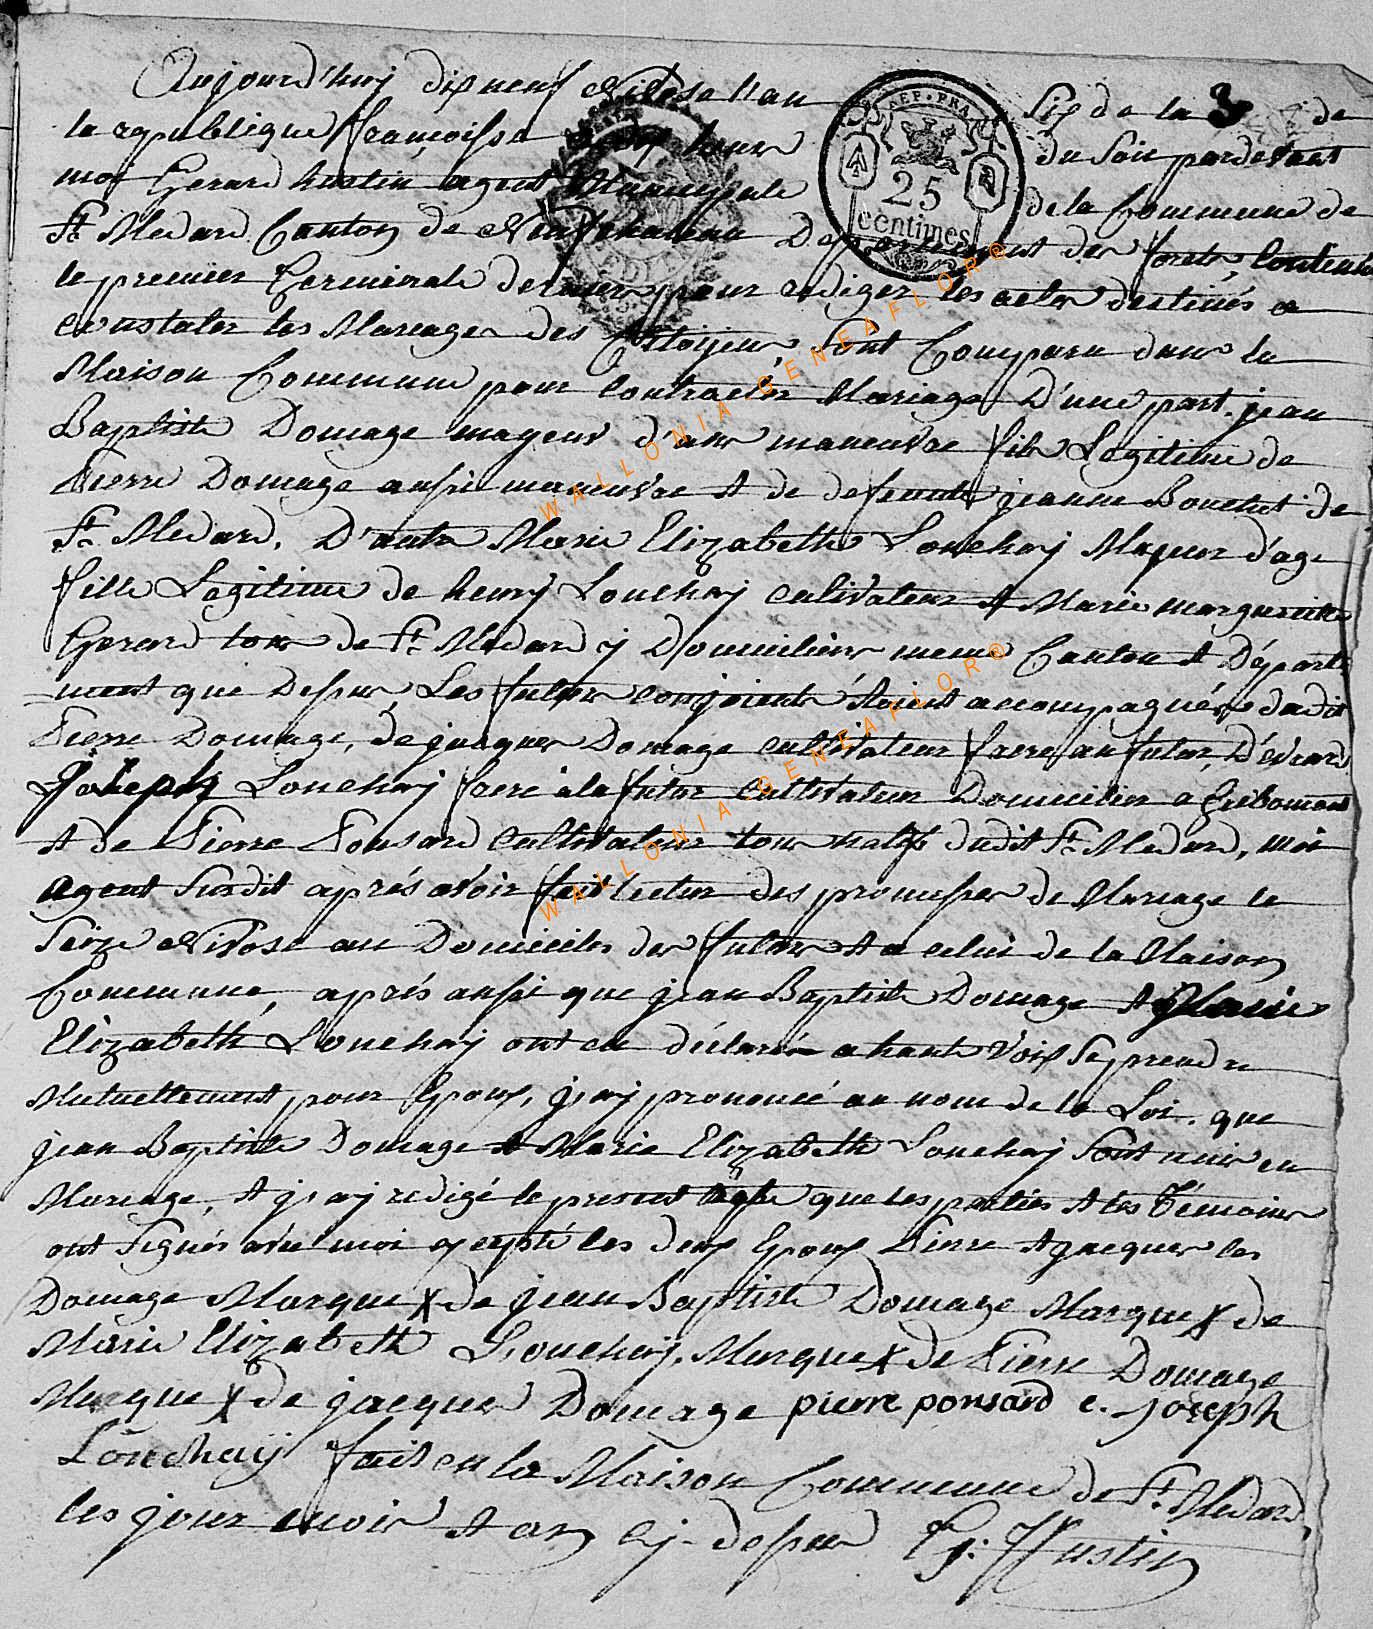 Aujourd'huy dixneuf Nivose l'an Six de la 3 de
la republique françoisse a dix heure du Soir pardevant
moi Gerard hustin agent Municipale de la Commune de
St. Medard Canton de Neufchateau Departement des forets,
le premier Germinal dernier pour rediger les actes destinés a
constater les Mariages des Citoÿens, Sont Comparu dans la
Maison Commune pour contracter Mariage D'une part, jean
Baptiste Domage mayeur d'ans maneuvre fils Legitime de
Pierre Domage aussi maneuvre et de defeunte jeanne Bouchet de
St. Medard, D'autre Marie Elizabethe Louchay Majeur d'age
fille Legitime de henry Louchay cultivateur et Marie margueritte
Gerard tous de St. Medard y Domiciliés meme Canton et Départe
ment que Dessus, Les futurs conjoients étoient accompagnés dudit
Pierre Domage, de jacques Domage cultivateur frere au futur, D'evrard
Joseph Louchay frere a la futur cultivateur Domicilier a
et de Pierre Ponsard cultivateur tous natifs dudit St. Medard, moi
agent Surdit aprés avoir fait lectur des promesses de Mariage le
Seize Nivose au Domiciles des futurs et a celui de la Maison
Commune, aprés aussi que jean Baptiste Domage et Marie
Elizabethe Louchay ont eu déclaré a haute voix Se prendre
Mutuellement pour Epoux, j'ay prononcé au nom de la Loi, que
jean Baptiste Domage et Marie Elizabethe Louchay Sont unis en
Mariage, et j'ay redigé le present acte que les parties et les Témoins
ont Signés avec moi exepté les deux Epoux Pierre et jacques les
Domage Marque X de jean Baptiste Domage Marque X de
Marie Elizabethe Louchay, Marque X de Pierre Domage
Marque X de jacques Domage pierre ponsard e. joseph
Louchaÿ fait en la Maison Commune de St. Medard,
les jour mois et an cy-dessus G: Hustin
REP. FRA.
25
centimes
WALLONIA-GENEAFLOR®
WALLONIA-GENEAFLOR®